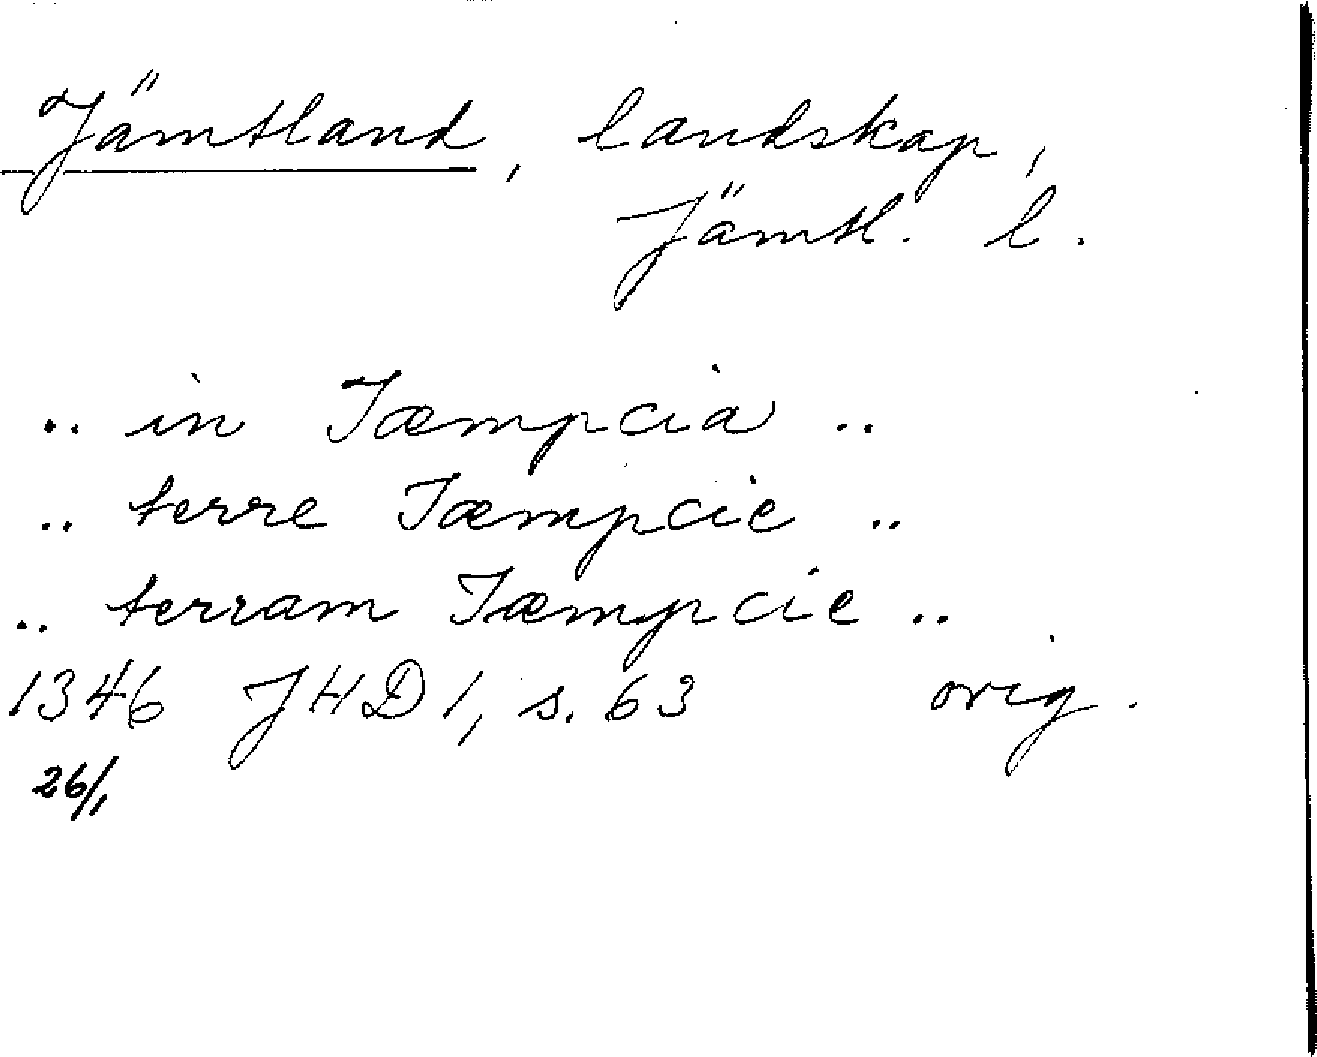 Jämtland, landskap,
Jämtl. l.
.. in Jæmpcia ..
.. terre Jæmpcie ..
.. terram Jæmpcie ..
1346 JHD 1, s. 63 orig.
26/1